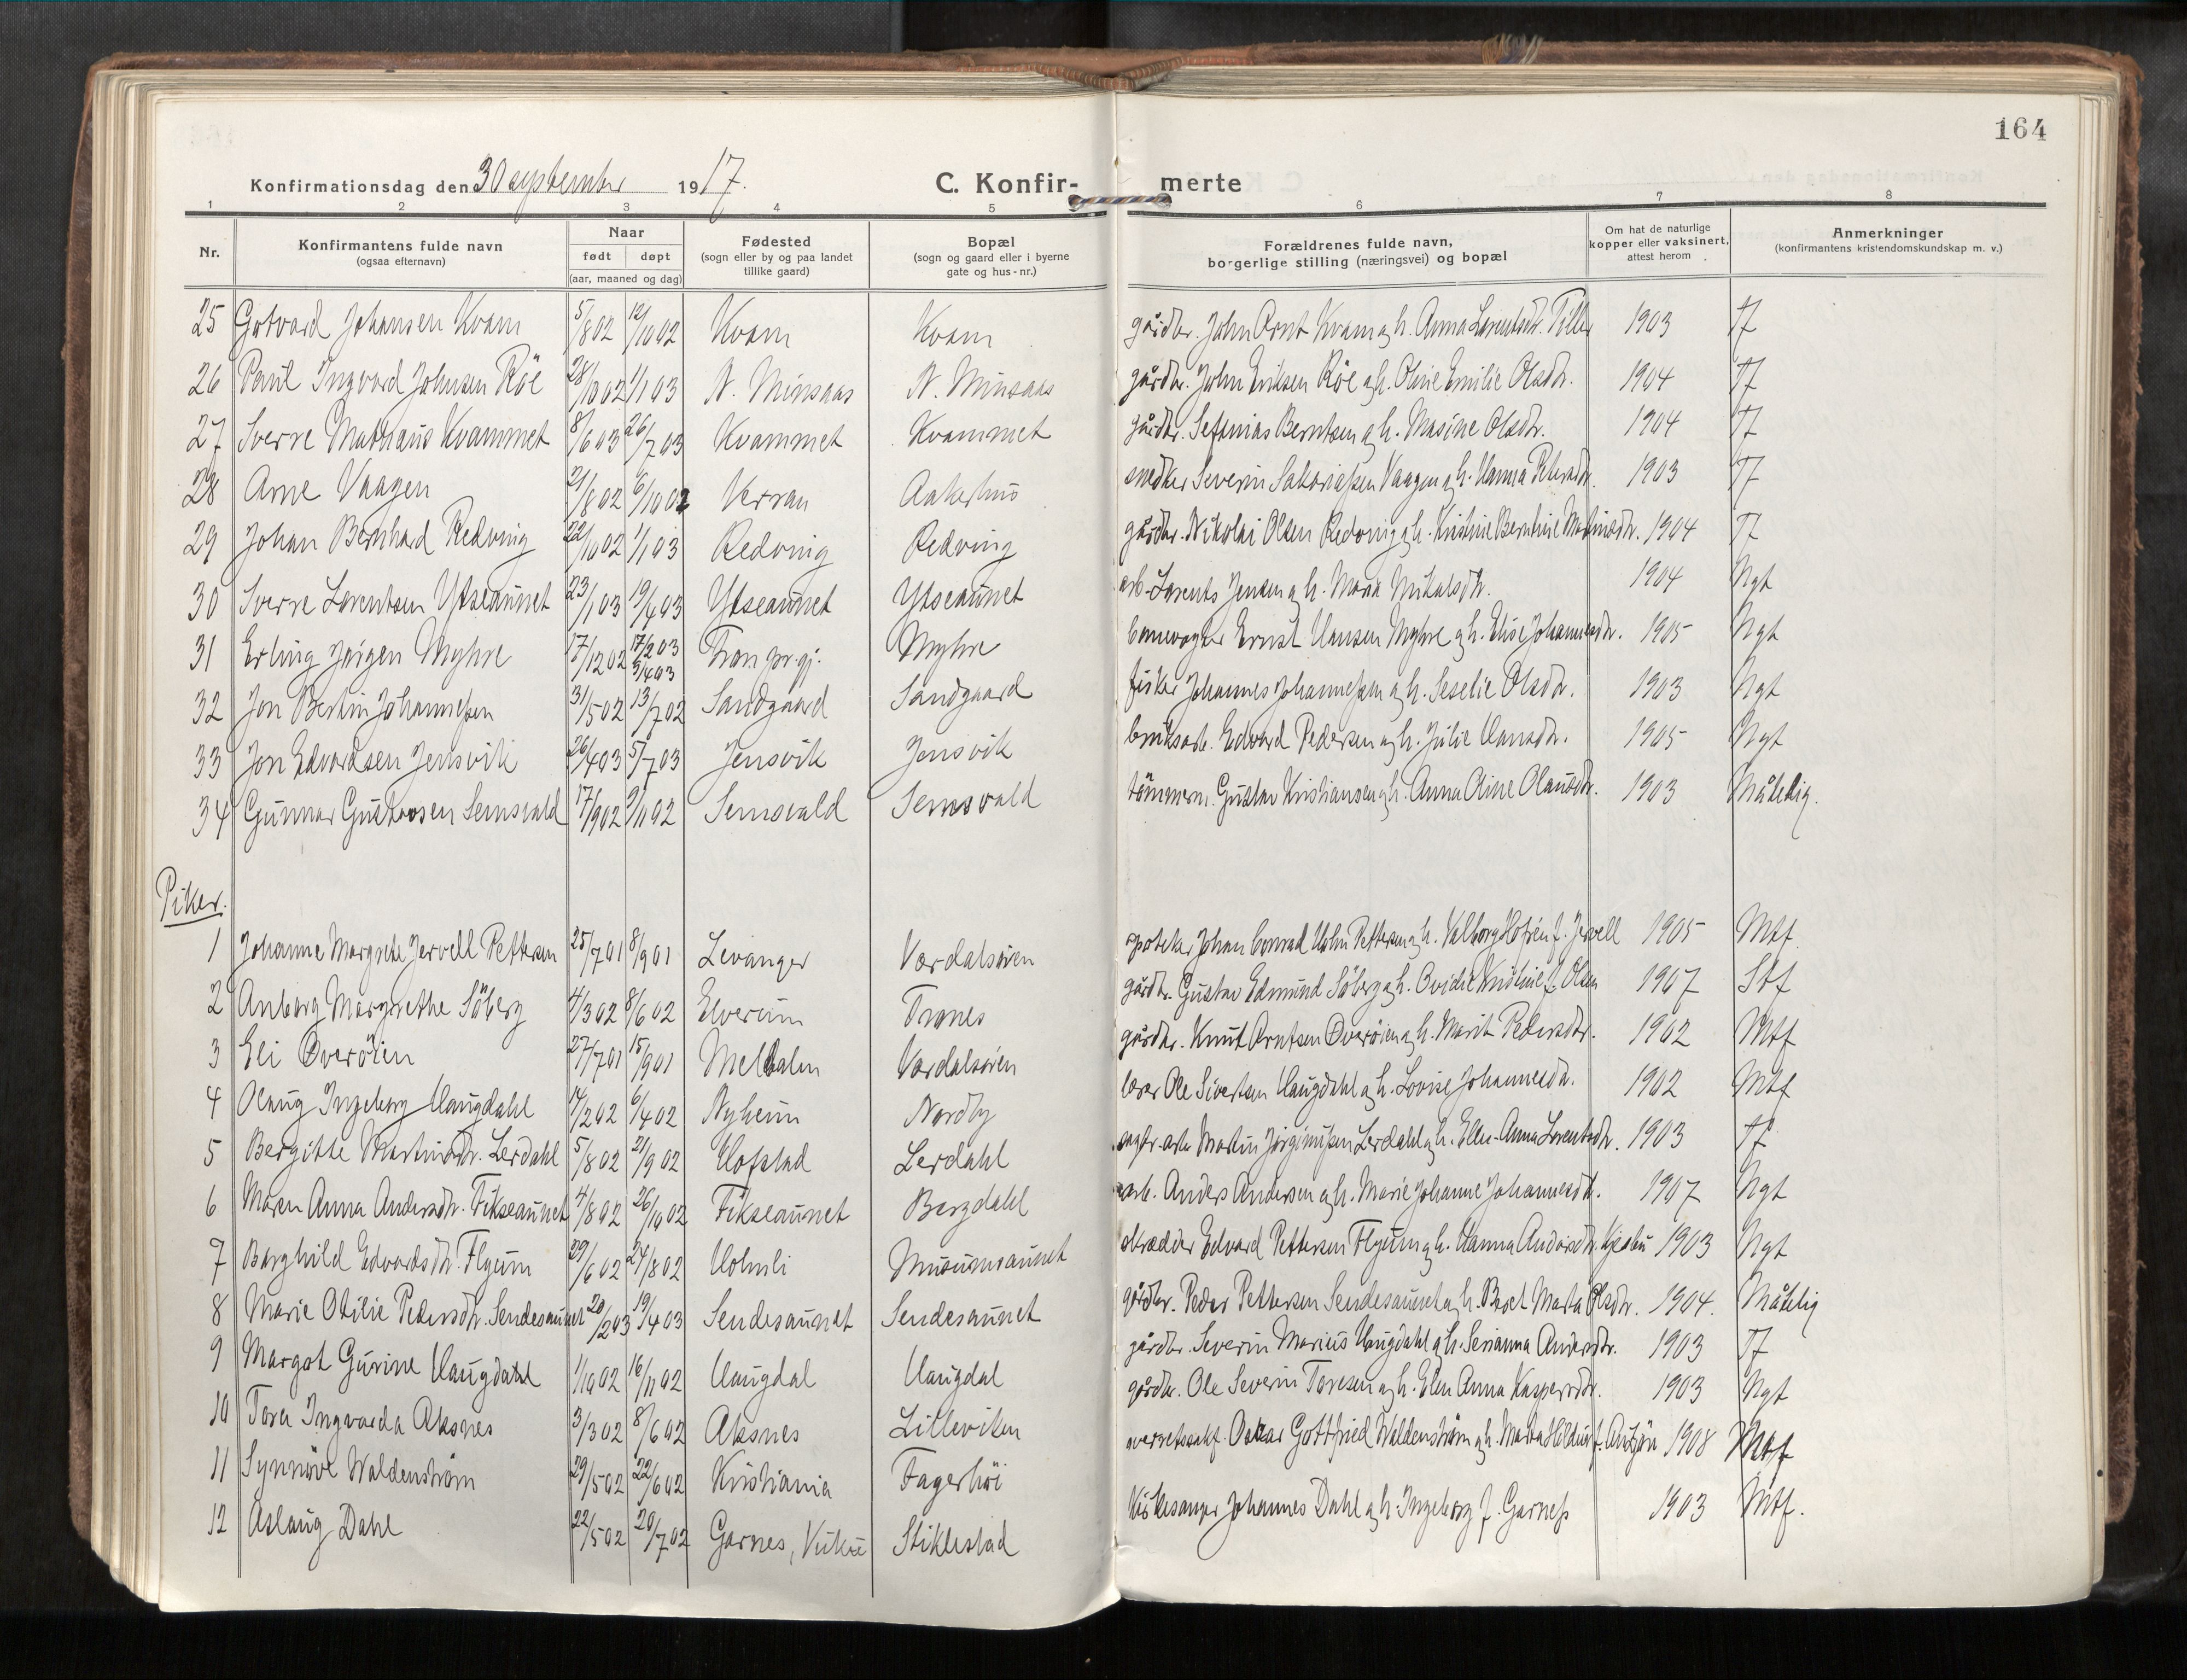 164
Konfirmationsdag den 30 september 1917. C. Konfir- merte
1 2 3 4 5 6 7 8
Nr. Konfirmantens fulde navn (ogsaa efternavn) Naar født døpt (aar, maaned og dag) Fødested (sogn eller by og paa landet tillike gaard) Bopæl (sogn og gaard eller i byerne gate og hus-nr.) Forældrenes fulde navn, borgerlige stilling (næringsvei) og bopæl Om hat de naturlige kopper eller vaksinert, attest herom Anmerkninger (konfirmantens kristendomskundskap m. v.)
25 Gotvard Johansen Kvam 5/8 02 12/10 02 Kvam Kvam gårdbr. John Arnt Kvam og h. Anna Larentsdtr. Tiller 1903 Tf
26 Paul Ingvard Johnsen Röe 28/10 02 1/1 03 N. Minsaas N. Minsaas gårdbr. John Eriksen Röe og h. Oline Emilie Olsdtr. 1904 Tf
27 Sverre Mathæus Kvammet 8/6 03 26/7 03 Kvammet Kvammet gårdbr. Sefanias Berntsen og h. Masine Olsdtr. 1904 Tf
28 Arne Vaagen 21/8 02 6/10 02 Verran Aakerhus snedker Severin Sakariassen Vaagen og h. Hanna Petersdtr. 1903 Tf
29 Johan Bernhard Redving 22/10 02 1/1 03 Redving Redving gårdbr. Nikolai Olsen Redving og h. Kristine Berntine Martinsdtr. 1904 Tf
30 Sverre Larentsen Ytseaunet 23/1 03 19/4 03 Ytseaunet Ytseaunet arb. Larents Jensen og h. Maria Mikalsdtr. 1904 Ngt
31 Erling Jörgen Myhre 17/12 02 17/2 03 5/4 03 Fron pr.gj. Myhre banevogter Ernst Hansen Myhre og h. Elise Johannesdtr. 1905 Ngt
32 Jon Bertin Johannessen 31/5 02 13/7 02 Sandgaard Sandgaard fisker Johannes Johannessen og h. Seselie Olsdtr. 1903 Ngt
33 Jon Edvardsen Jensvik 26/4 03 5/7 03 Jensvik Jensvik bruksarb. Edvard Pedersen og h. Julie Hansdtr. 1905 Ngt
34 Gunnar Gustavsen Semsvald 17/9 02 9/11 02 Semsvald Semsvald tömmerm. Gustav Kristiansen og h. Anna Oline Olausdtr. 1903 Måtelig.
Piker.
1 Johanne Margrete Jervell Pettersen 25/7 01 8/9 01 Levanger Værdalsøren apoteker Johan Conrad Holm Pettersen og h. Valborg Höfrén f. Jervell 1905 Mtf
2 Anborg Margrethe Söberg 4/3 02 8/6 02 Elverum Trones gårdbr. Gustav Edmund Söberg og h. Ovidie Kristine f. Olsen 1907 Stf
3 Eli Överöien 27/7 01 15/9 01 Meldalen Værdalsøren gårdbr. Knut Arntsen Överöien og h. Marit Pedersdtr. 1902 Mtf
4 Olaug Ingeborg Haugdahl 14/2 02 6/4 02 Nyheim Nordby lærer Ole Sivertsen Haugdahl og h. Lovise Johannesdtr. 1902 Mtf
5 Bergitte Martinsdtr. Lerdahl 5/8 02 21/9 02 Hofstad Lerdahl sagbr.arb. Martin Jörginussen Lerdahl og h. Ellen-Anna Larentsdtr. 1903 Tf
6 Maren Anna Andersdtr. Fikseaunet 4/8 02 26/10 02 Fikseaunet Bergdahl arb. Anders Andersen og h. Marie Johanne Johannesdtr. 1907 Ngt
7 Borghild Edvardsdtr. Flyum 29/6 02 24/8 02 Holmli Musumsaunet skrædder Edvard Pettersen Flyum og h. Hanna Andorsdtr. Kjesbu 1903 Ngt
8 Marie Otilie Pedersdtr. Sendesaunet 20/2 03 19/4 03 Sendesaunet Sendesaunet gårdbr. Peder Pettersen Sendesaunet og h. Beret Marta Olsdtr. 1904. Måtelig
9 Margot Gurine Haugdahl 1/10 02 16/11 02 Haugdal Haugdal gårdbr. Severin Marius Haugdahl og h. Serianna Andersdtr. 1903 Tf
10 Tora Ingvarda Aksnes 3/3 02 8/6 02 Aksnes Litleviken gårdbr. Ole Severin Toresen og h. Elen Anna Kaspersdtr. 1903 Ngt
11 Synnöve Waldenström 29/5 02 22/6 02 Kristiania Fagerhöi Oskar Gottfried Waldenström og h. Marta f. 1908 Mtf
12 Aslaug Dahl 22/5 02 20/7 02 Garnes, Stiklestad kirkesanger Johannes Dahl og h. Ingeborg f. Garnes 1903 Mtf.